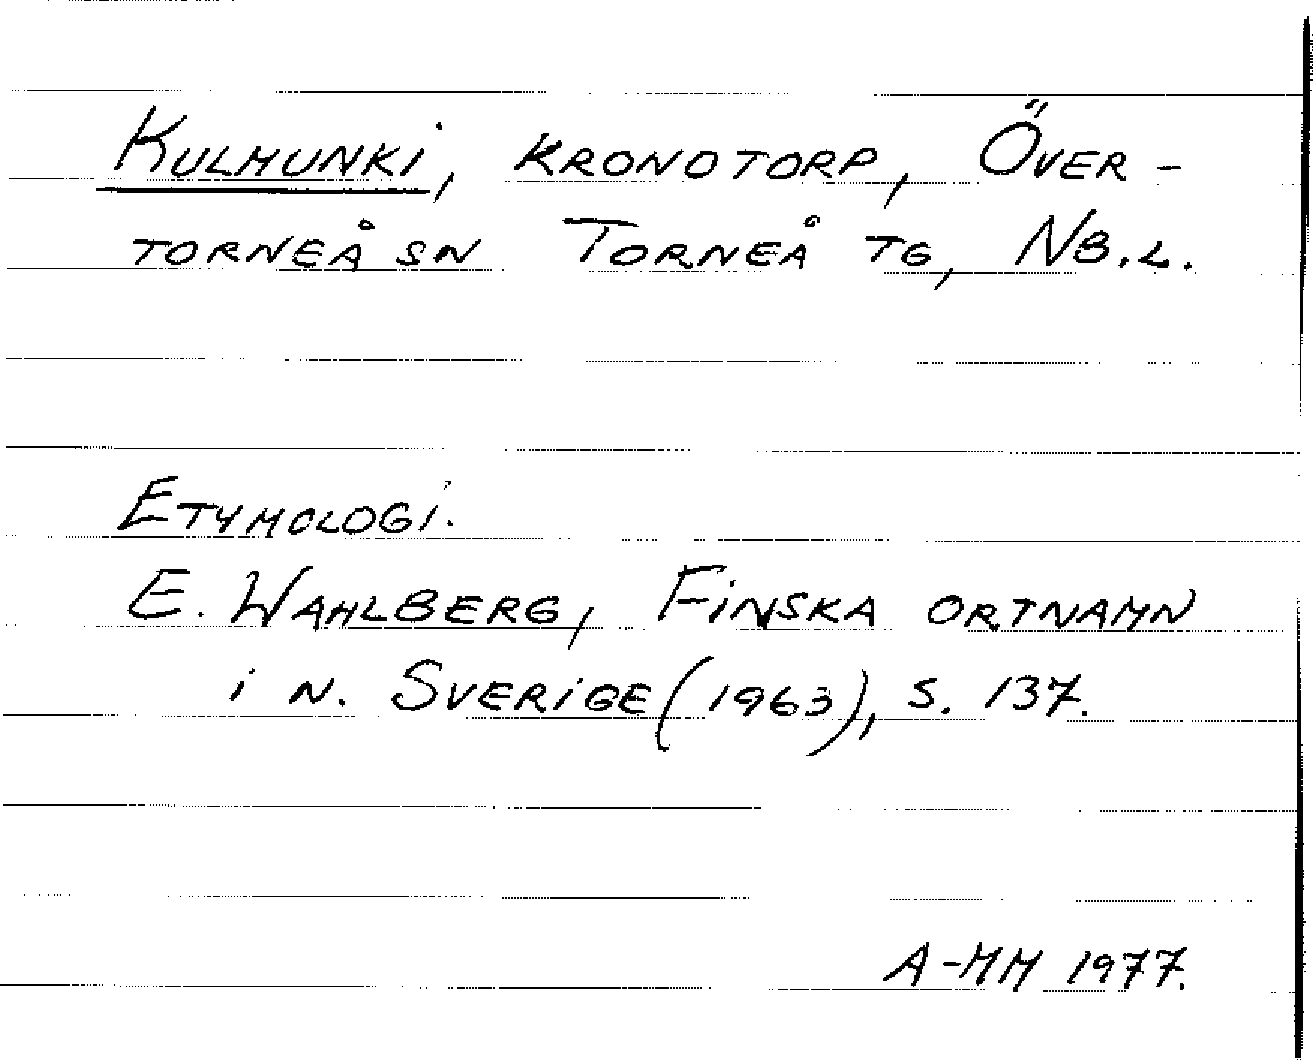 KULMUNKI, KRONOTORP, ÖVER-
TORNEÅ SN TORNEÅ TG, NB.L.
ETYMOLOGI.
E. WAHLBERG, FINSKA ORTNAMN
I N. SVERIGE (1963), S. 137.
A-MM 1977.